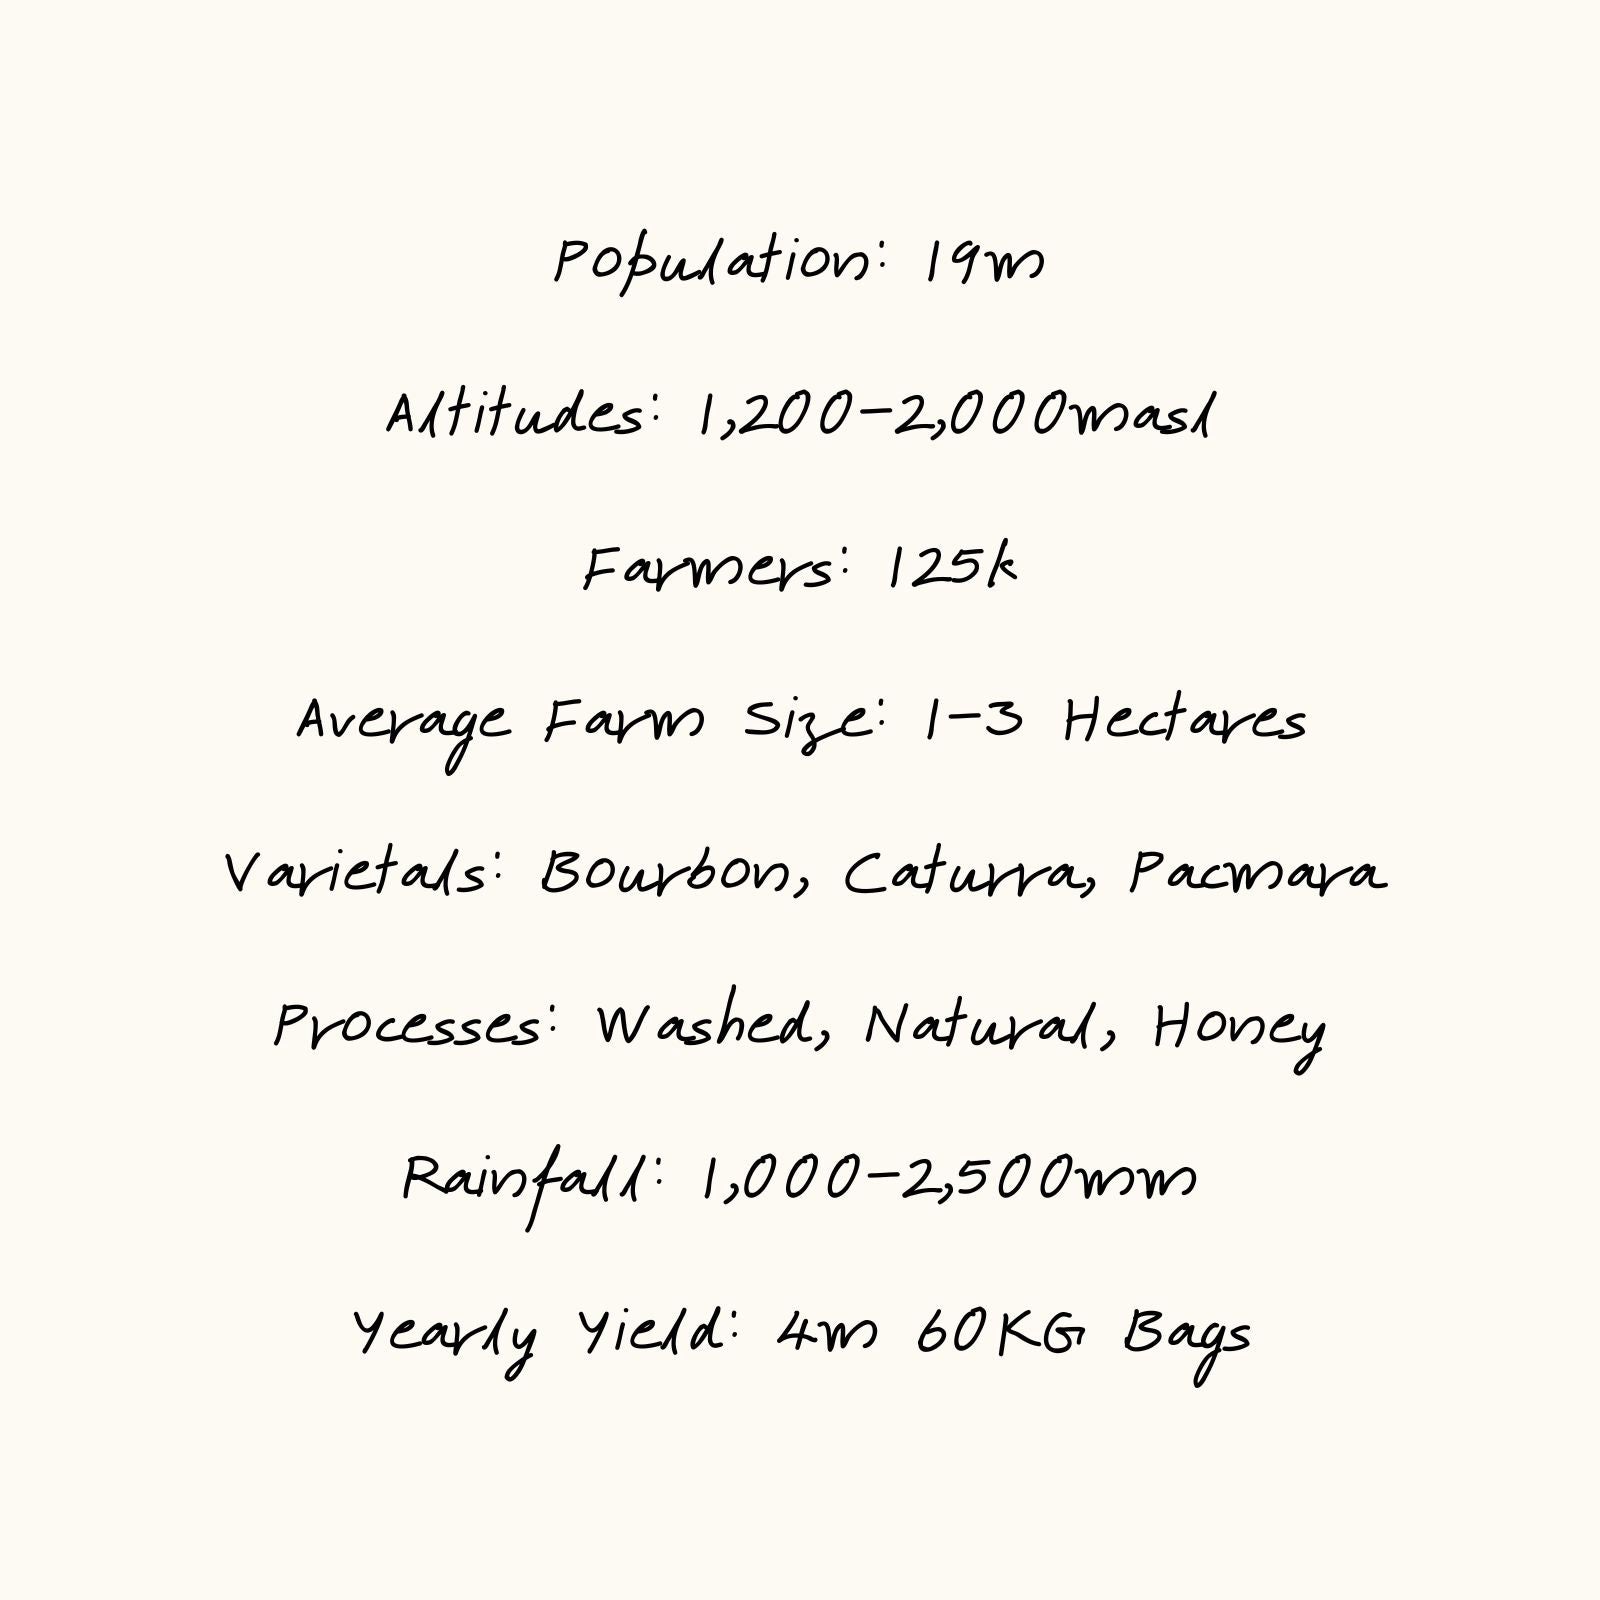 Population: 19m
Altitudes: 1,200-2,000masl
Farmers: 125k
Average Farm Size: 1-3 Hectares
Varietals: Bourbon, Caturra, Pacmara
Processes: Washed, Natural, Honey
Rainfall: 1,000-2,500mm
Yearly Yield: 4m 60KG Bags